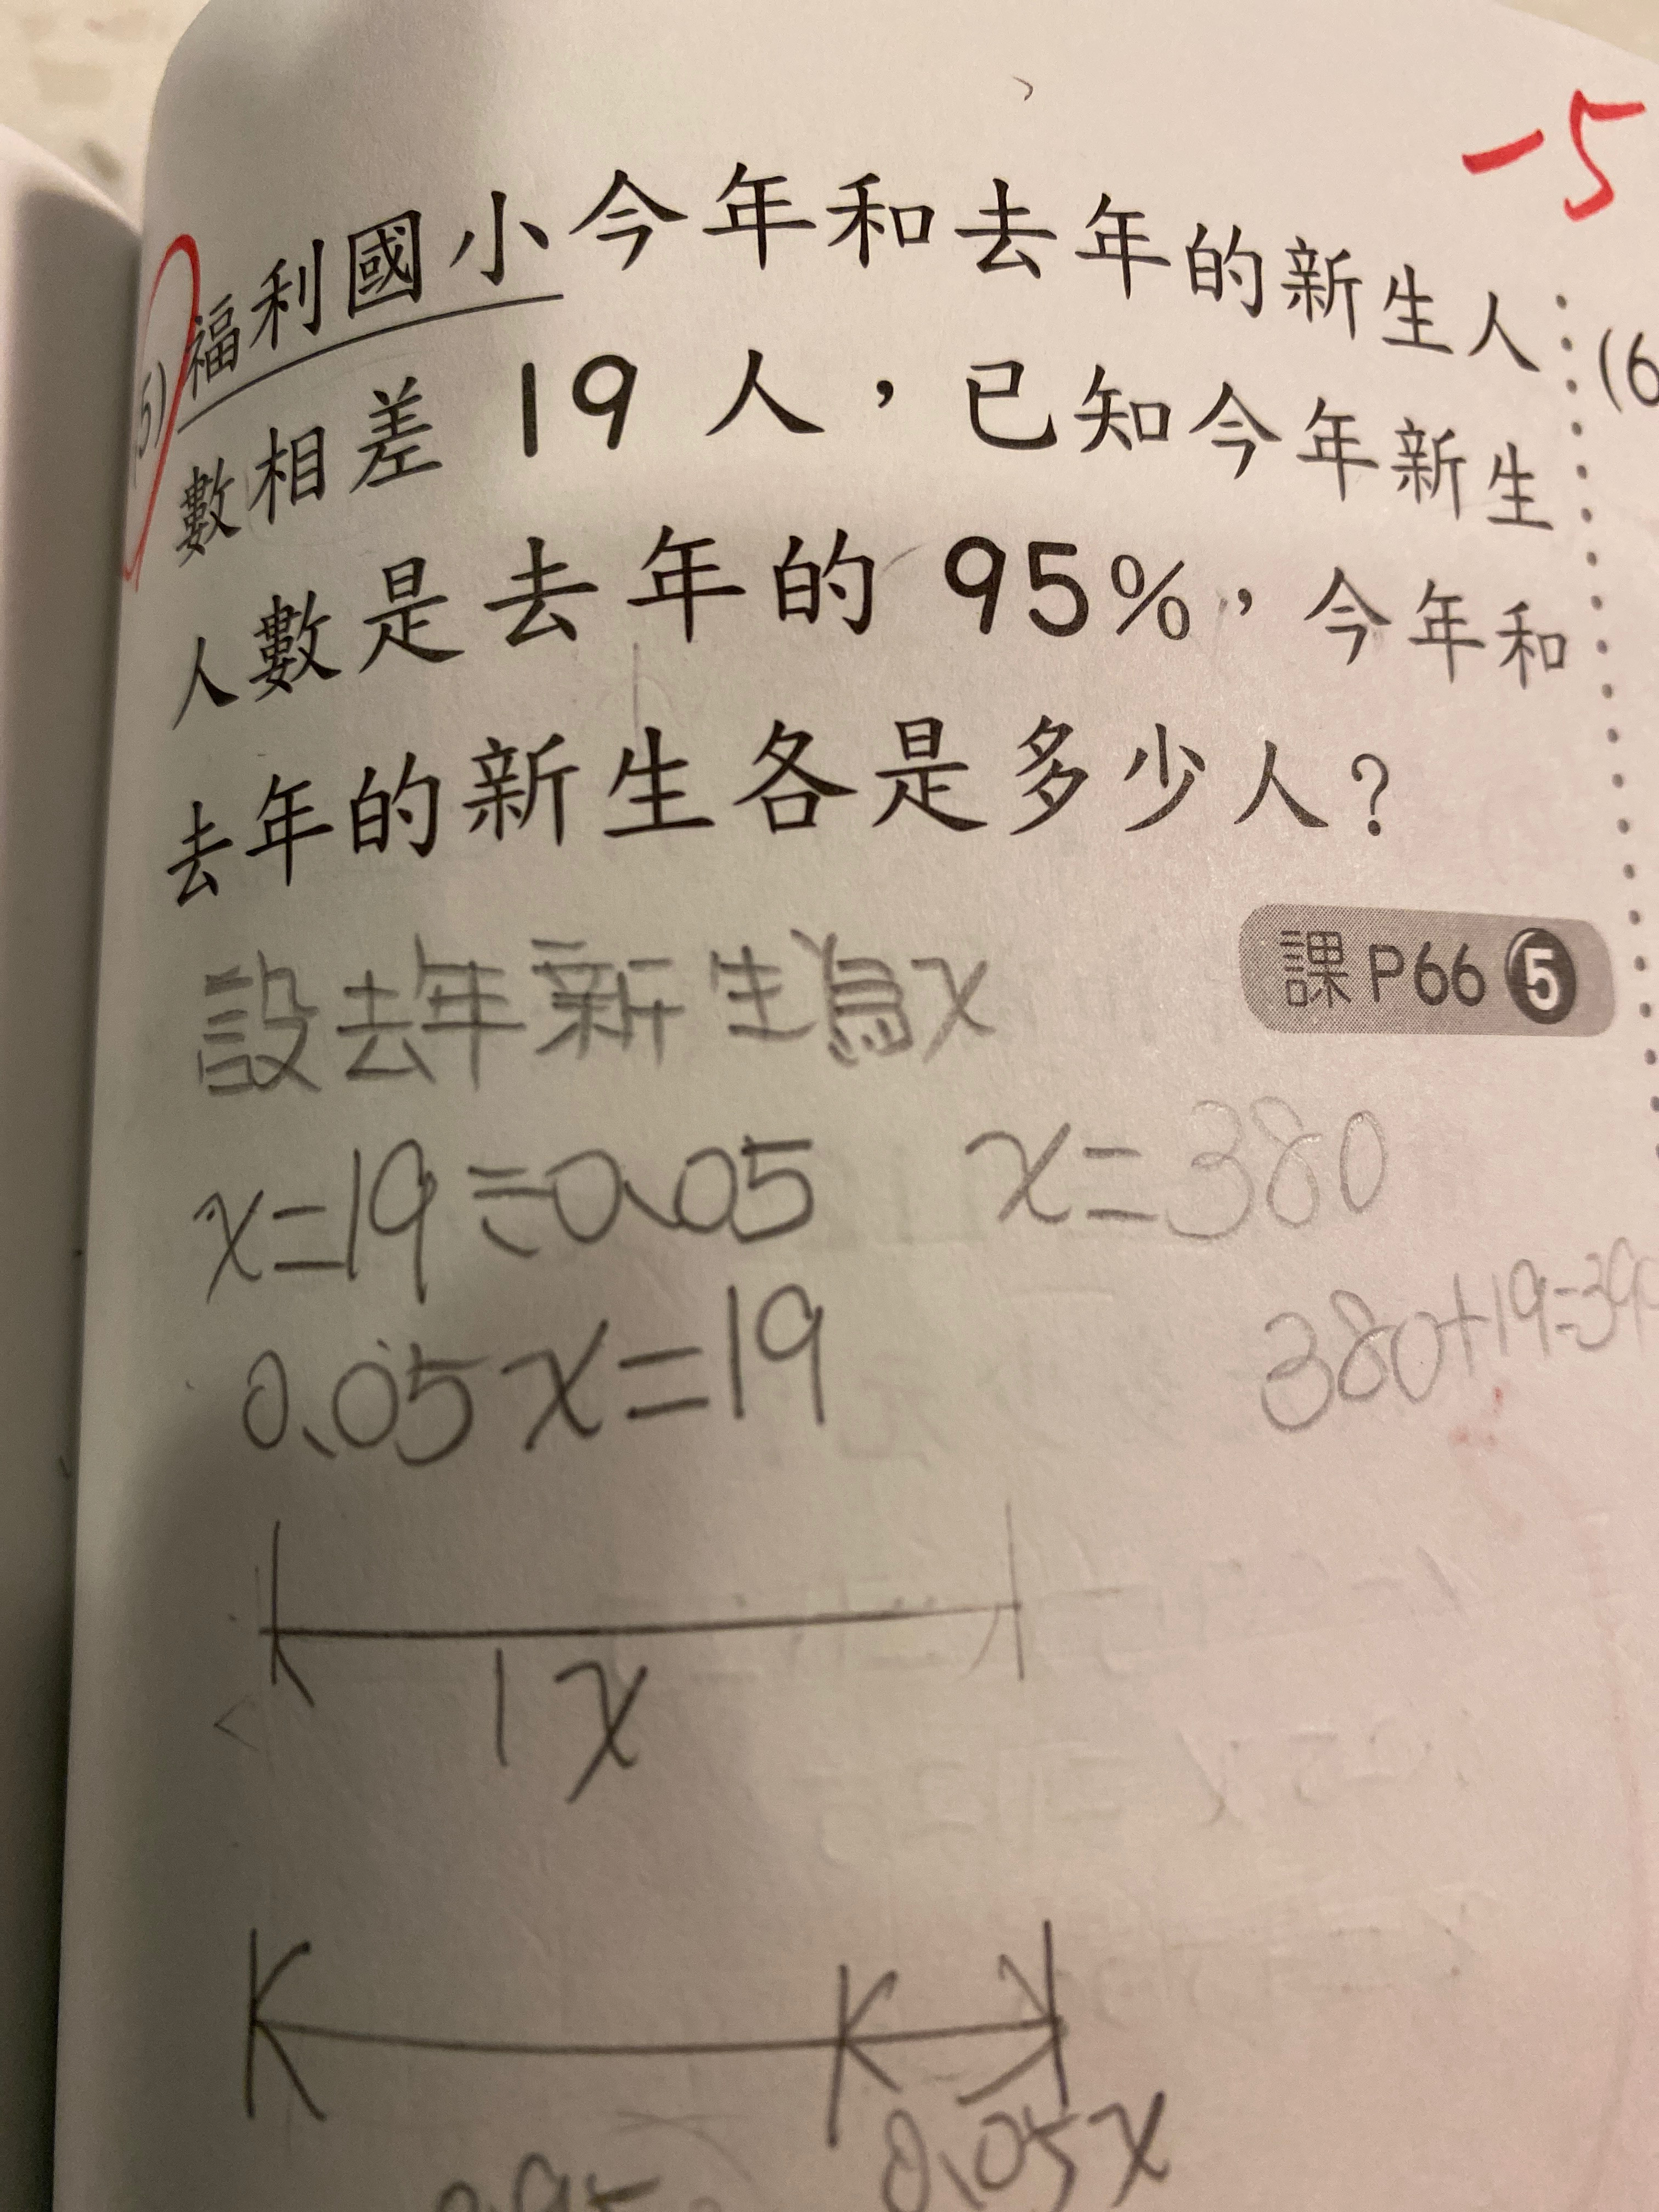 -5
(5) 福利國小今年和去年的新生人
數相差 19 人，已知今年新生
人數是去年的 95%，今年和
去年的新生各是多少人？
(6
課 P66 5
設去年新生為x
x=19÷0.05
x=380
0.05x=19
380+19=399
1x
0.05x
0.95